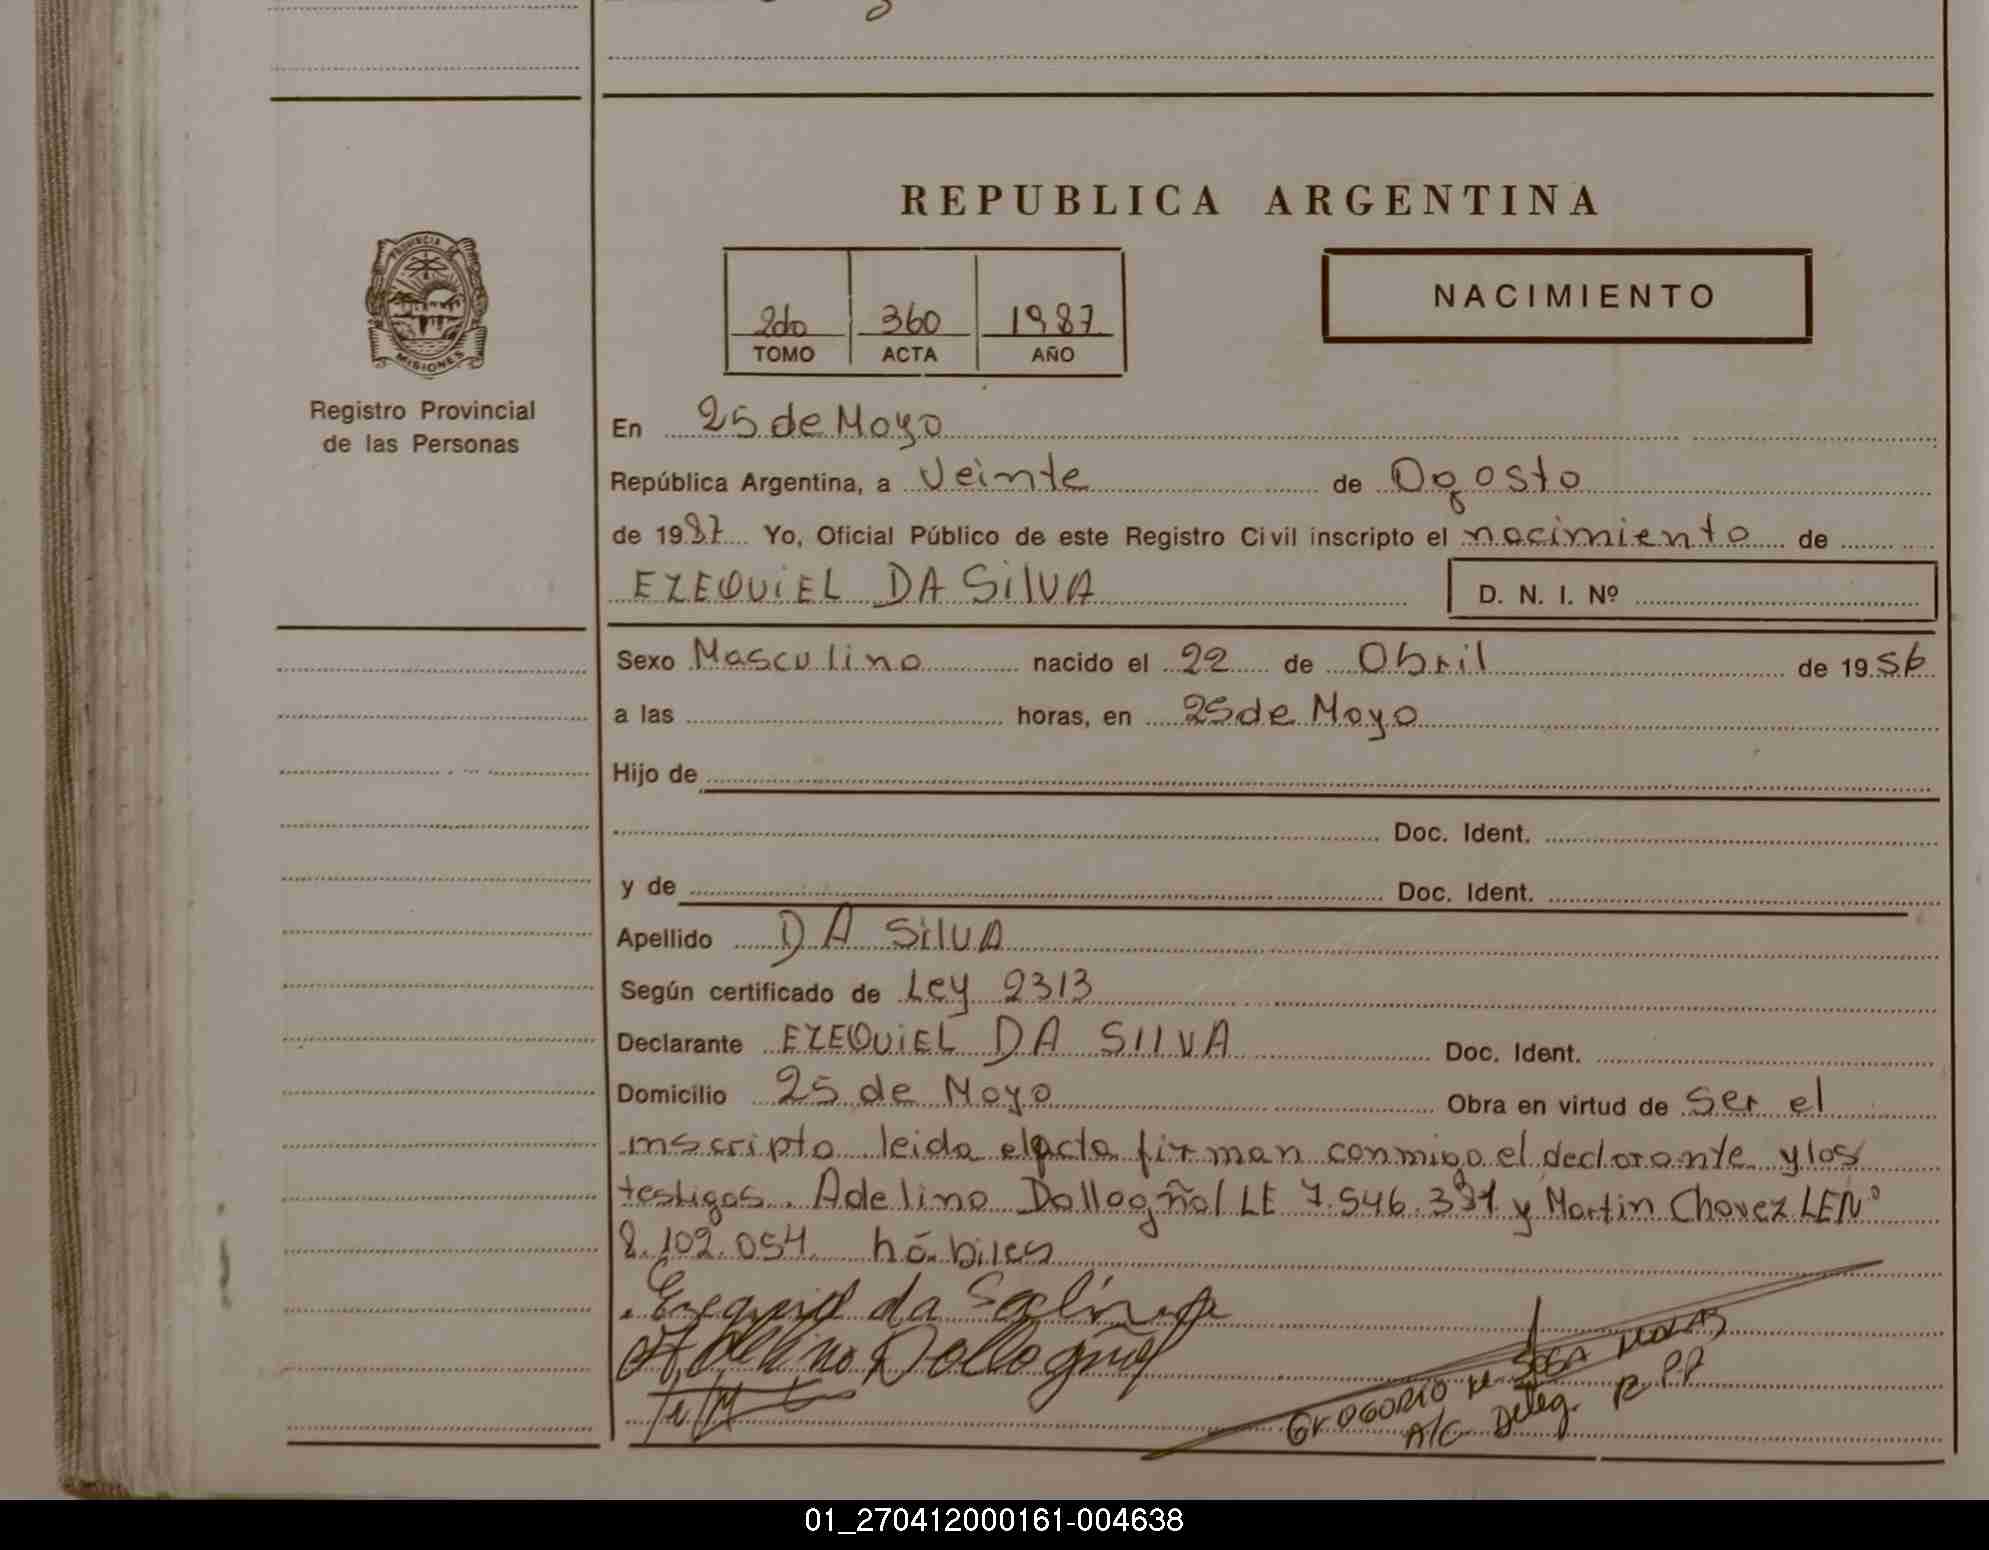 REPUBLICA ARGENTINA
PROVINCIA DE
MISIONES
Registro Provincial
de las Personas
2do 360 1987
TOMO ACTA AÑO
NACIMIENTO
En 25 de Mayo
República Argentina, a Veinte de Agosto
de 1987 Yo, Oficial Público de este Registro Civil inscripto el nacimiento de
EZEQUIEL DA SILVA D. N. I. Nº
Sexo Masculino nacido el 22 de Abril de 1956
a las horas, en 25 de Mayo
Hijo de
Doc. Ident.
y de Doc. Ident.
Apellido DA SILVA
Según certificado de Ley 2313
Declarante EZEQUIEL DA SILVA Doc. Ident.
Domicilio 25 de Mayo Obra en virtud de ser el
inscripto leida el acta firman conmigo el declarante y los
testigos. Adelino Dallogñol LE 7.546.391 y Martin Chavez LE Nº
8.102.054 hábiles
Ezequiel da Salinva
Adelino Dallogñol
GrOGORIO SOSA
A/C Deleg. R P P
01_270412000161-004638